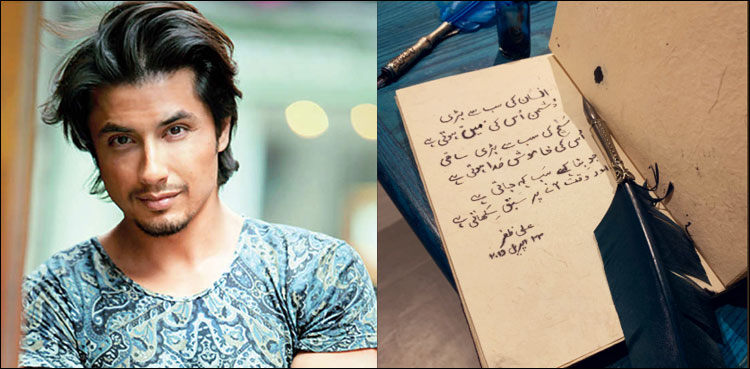 انسان کی سب سے بڑی
دشمن اُس کی میں ہوتی ہے
سچ کی سب سے بڑی ساتھی
اُس کی خاموش ہوتی ہے
جو بنا کہے سب کہہ جاتی ہے
اور وقت آنے پر سبق سکھاتی ہے
علی ظفر
۲۳ اپریل